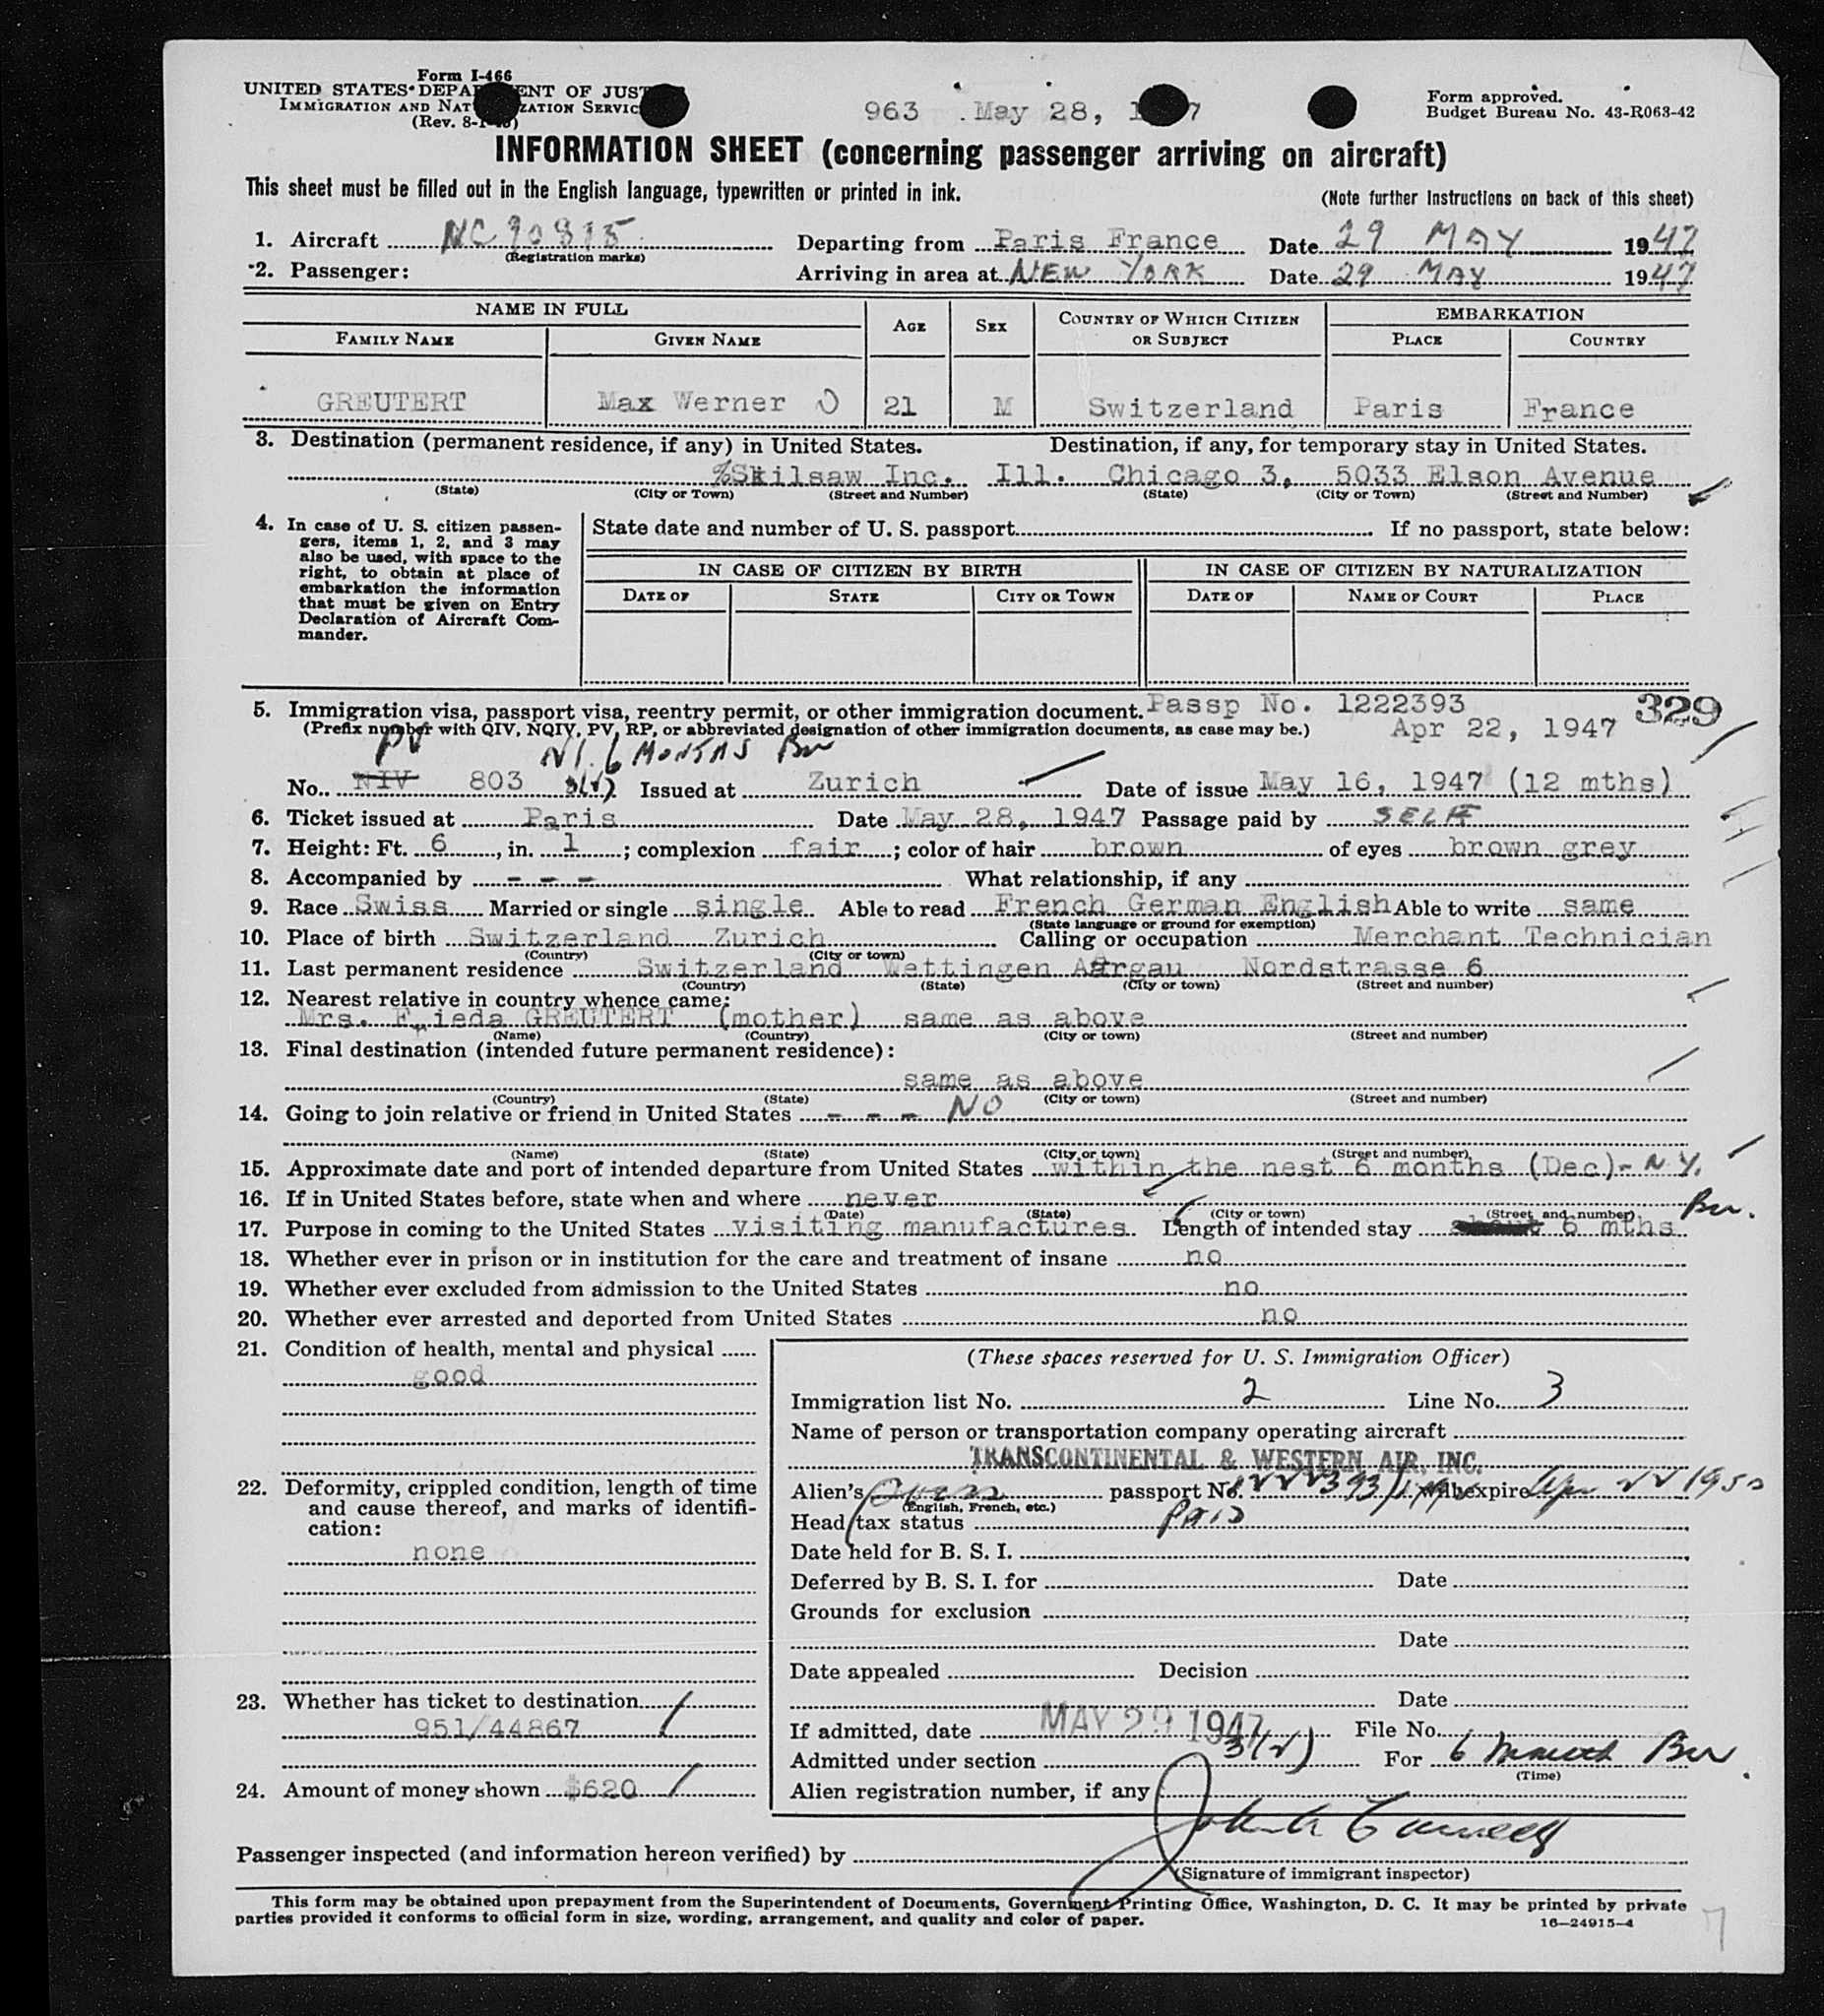 Form I-466
UNITED STATES DEPA ENT OF JUST
IMMIGRATION AND NAT ZATION SERVIC
(Rev. 8-1- )
963 May 28, 1 7
Form approved.
Budget Bureau No. 43-R063-42
INFORMATION SHEET (concerning passenger arriving on aircraft)
This sheet must be filled out in the English language, typewritten or printed in ink.
(Note further Instructions on back of this sheet)
1. Aircraft NC90815 Departing from Paris France Date 29 MAY 1947
(Registration marks)
2. Passenger: Arriving in area at NEW YORK Date 29 MAY 1947
NAME IN FULL AGE SEX COUNTRY OF WHICH CITIZEN OR SUBJECT EMBARKATION
FAMILY NAME GIVEN NAME PLACE COUNTRY
GREUTERT Max Werner 21 M Switzerland Paris France
3. Destination (permanent residence, if any) in United States. Destination, if any, for temporary stay in United States.
%Skilsaw Inc. Ill. Chicago 3, 5033 Elson Avenue
(State) (City or Town) (Street and Number) (State) (City or Town) (Street and Number)
4. In case of U. S. citizen passen-
gers, items 1, 2, and 3 may
also be used, with space to the
right, to obtain at place of
embarkation the information
that must be given on Entry
Declaration of Aircraft Com-
mander.
State date and number of U. S. passport If no passport, state below:
IN CASE OF CITIZEN BY BIRTH IN CASE OF CITIZEN BY NATURALIZATION
DATE OF STATE CITY OR TOWN DATE OF NAME OF COURT PLACE
5. Immigration visa, passport visa, reentry permit, or other immigration document. Passp No. 1222393 329
(Prefix number with QIV, NQIV, PV, RP, or abbreviated designation of other immigration documents, as case may be.) Apr 22, 1947
PV NI. 6 MONTHS Bw
No. NIV 803 3(2) Issued at Zurich Date of issue May 16, 1947 (12 mths)
6. Ticket issued at Paris Date May 28, 1947 Passage paid by SELF
7. Height: Ft. 6, in. 1; complexion fair; color of hair brown of eyes brown grey
8. Accompanied by - - - What relationship, if any
9. Race Swiss Married or single single Able to read French German English Able to write same
(State language or ground for exemption)
10. Place of birth Switzerland Zurich Calling or occupation Merchant Technician
(Country) (City or town)
11. Last permanent residence Switzerland Wettingen Aargau Nordstrasse 6
(Country) (State) (City or town) (Street and number)
12. Nearest relative in country whence came:
Mrs. Frieda GREUTERT (mother) same as above
(Name) (Country) (City or town) (Street and number)
13. Final destination (intended future permanent residence):
same as above
(Country) (State) (City or town) (Street and number)
14. Going to join relative or friend in United States - - - NO
(Name) (State) (City or town) (Street and number)
15. Approximate date and port of intended departure from United States within the nest 6 months (Dec)- N.Y.
16. If in United States before, state when and where never Bw.
(Date) (State) (City or town) (Street and number)
17. Purpose in coming to the United States visiting manufactures Length of intended stay about 6 mths
18. Whether ever in prison or in institution for the care and treatment of insane no
19. Whether ever excluded from admission to the United States no
20. Whether ever arrested and deported from United States no
21. Condition of health, mental and physical
good
22. Deformity, crippled condition, length of time
and cause thereof, and marks of identifi-
cation:
none
23. Whether has ticket to destination
951/44867
24. Amount of money shown $620
(These spaces reserved for U. S. Immigration Officer)
Immigration list No. 2 Line No. 3
Name of person or transportation company operating aircraft
TRANSCONTINENTAL & WESTERN AIR, INC.
Alien's Swiss passport No. 1222393 expire Apr 22 1950
(English, French, etc.)
Head tax status Paid
Date held for B. S. I.
Deferred by B. S. I. for Date
Grounds for exclusion
Date
Date appealed Decision
Date
If admitted, date MAY 29 1947 File No.
Admitted under section 3(2) For 6 months Bw
(Time)
Alien registration number, if any
Passenger inspected (and information hereon verified) by
(Signature of immigrant inspector)
This form may be obtained upon prepayment from the Superintendent of Documents, Government Printing Office, Washington, D. C. It may be printed by private
parties provided it conforms to official form in size, wording, arrangement, and quality and color of paper.
16—24915-4
7